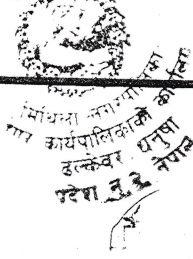 मिथिला नगरपालिका
नगर कार्यपालिकाको का
ढल्केवर धनुषा
प्रदेश नं. २ नेपाल